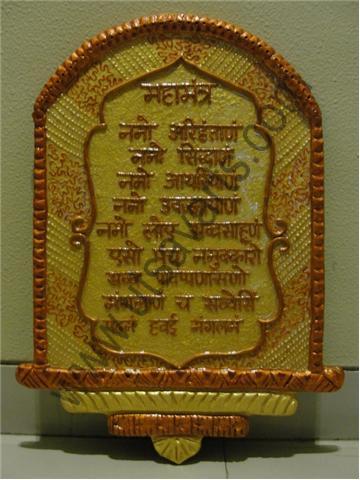 महामंत्र
नमो अरिहंताणं
नमो सिद्धाणं
नमो आयरियाणं
नमो उवज्झायाणं
नमो लोए सव्वसाहूणं
एसो पंच नमुक्कारो
सव्व पावप्पणासणो
मंगलाणं च सव्वेसिं
हवई मंगलमं